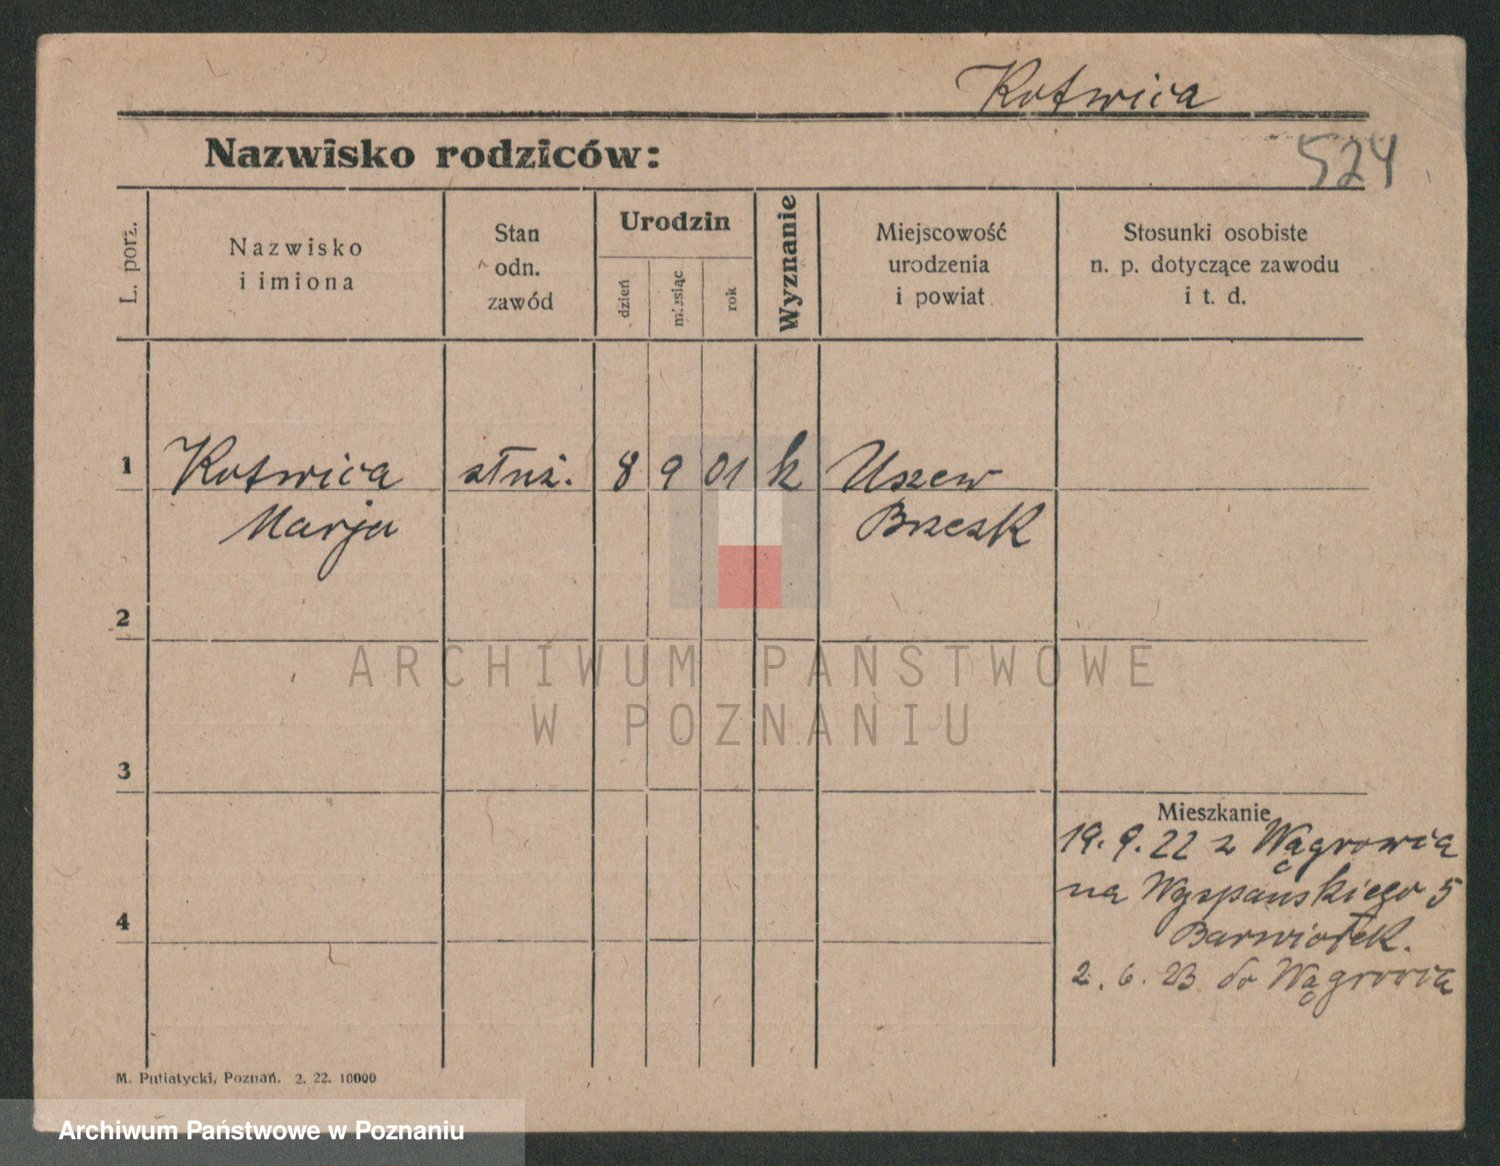 Kotwica
Nazwisko rodziców:
524
L. porz.
Nazwisko
i imiona
Stan
odn.
zawód
Urodzin
dzień
miesiąc
rok
Wyznanie
Miejscowość
urodzenia
i powiat
Stosunki osobiste
n. p. dotyczące zawodu
i t. d.
1 Kotwica służ. 8 9 01 k Uszew
Marja Brzesk
2
ARCHIWUM PAŃSTWOWE
W POZNANIU
3
Mieszkanie
19. 9. 22 z Wągrowca
na Wyspańskiego 5
4
Barwiołek.
2. 6. 23 do Wągrowca
M. Putiatycki, Poznań. 2. 22. 10000
Archiwum Państwowe w Poznaniu